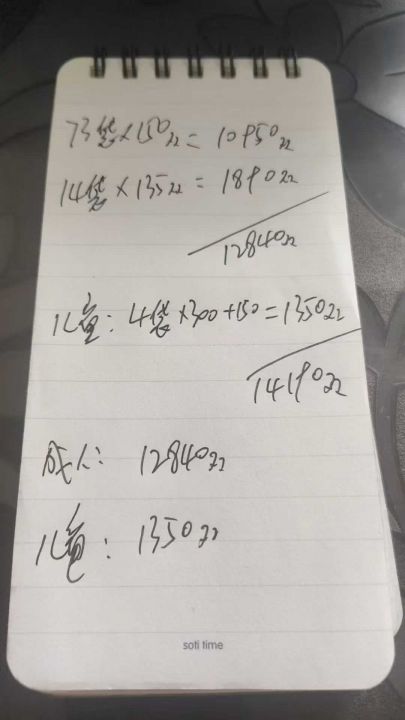 73袋×150双=10950双
14袋×135双=1890双
12840双
儿童:4袋×300+150=1350双
14190双
成人:12840双
儿童:1350双
soti time